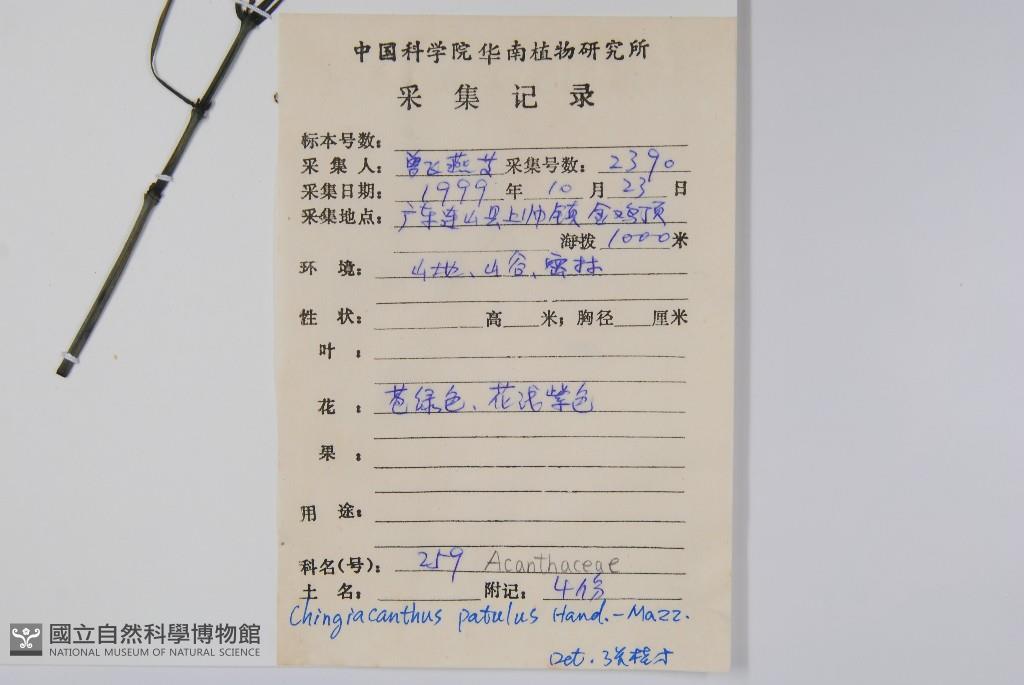 中国科学院华南植物研究所
采集记录
标本号数：
采集人：曾飞燕等 采集号数：2390
采集日期：1999年10月23日
采集地点：广东连山县上帅镇金鸡顶
海拨1000米
环境：山地、山谷、密林
性状： 高 米；胸径 厘米
叶：
花：苞绿色、花浅紫色
果：
用途：
科名(号)：259 Acanthaceae
土名： 附记：4份
Chingiacanthus patulus Hand.-Mazz.
Det. 张桂才
國立自然科學博物館
NATIONAL MUSEUM OF NATURAL SCIENCE